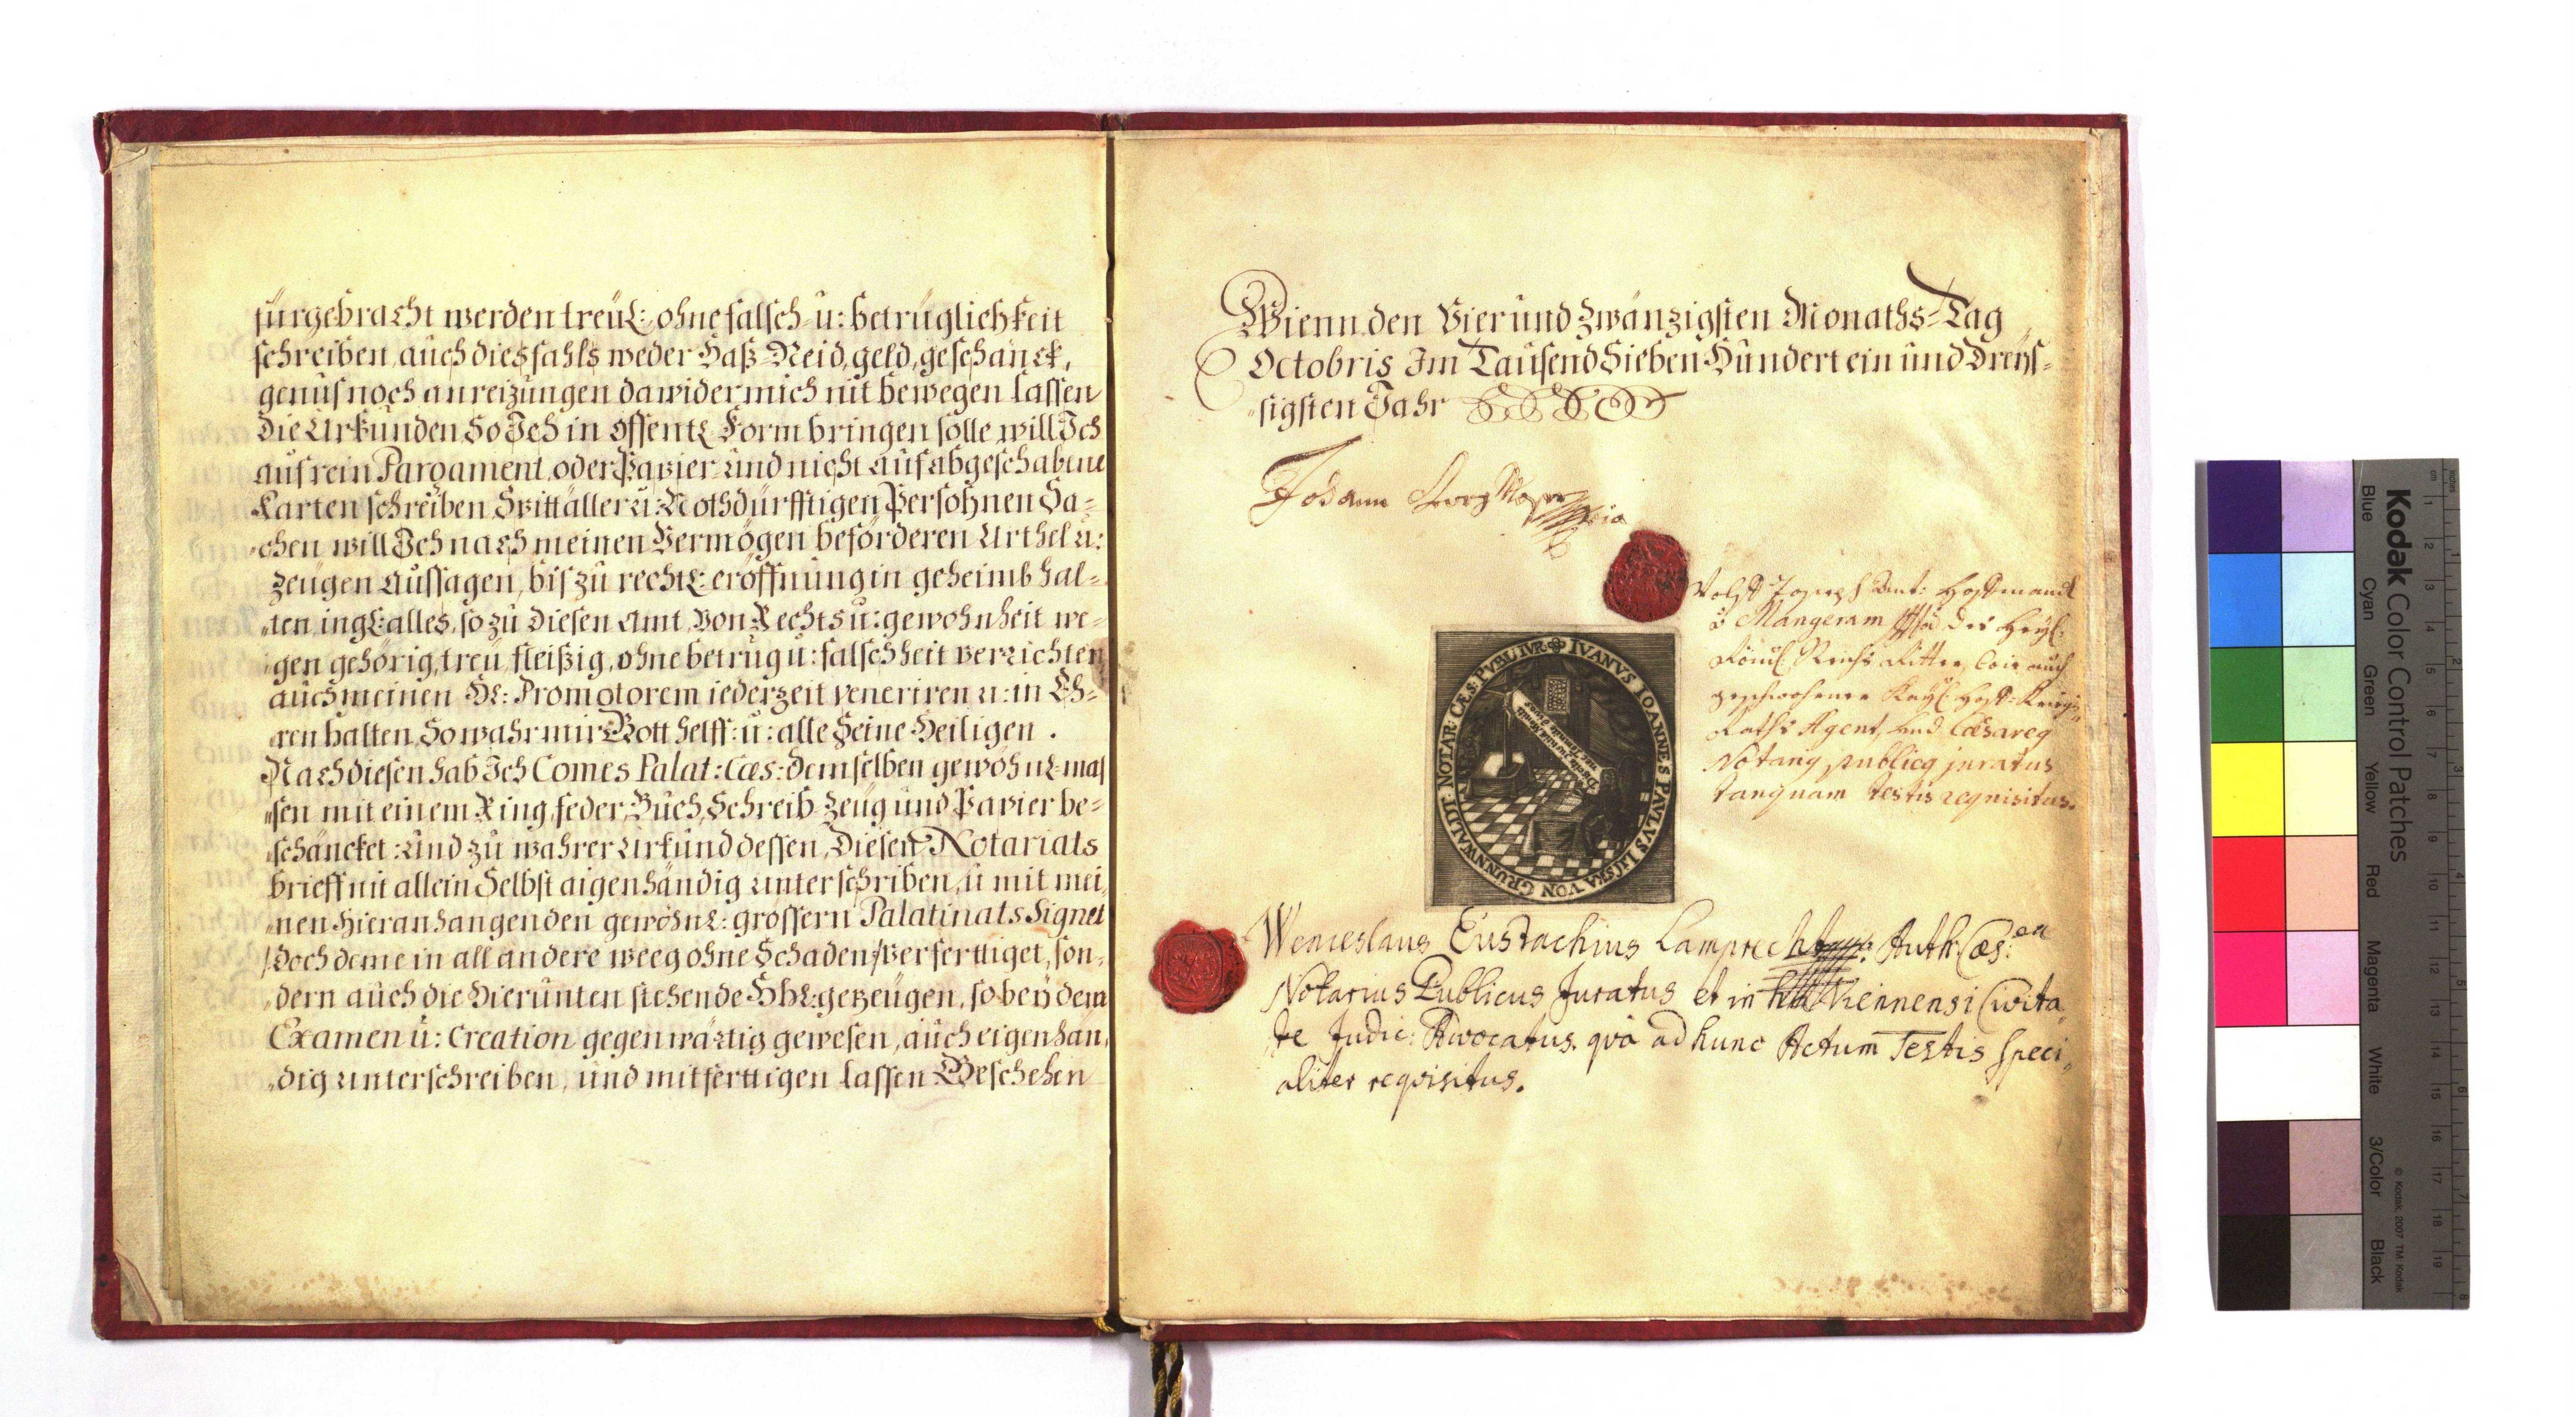 fürgebracht werden treül: ohne falsch u: betrüglichkeit
schreiben, auch diesfahls weder Haß Neid, geld, geschänck,
genus noch anreizungen dawider mich nit bewegen lassen
Die Urkunden So Ich in offentl Form bringen solle will Ich
auf rein Pargament, oder Papier und nicht auf abgeschabene
Karten schreiben, Spittäller u: Nothdürfftigen Persohnen Sa=
chen will Ich nach meinen Vermögen beförderen Urthel u:
Zeugen Aussagen, bis zu rechtl: eröffnung in geheimb hal=
ten, ingl: alles, so zu diesen Amt, von Rechts u: gewohnheit we=
gen gehörig, treu, fleißig, ohne betrug u: falschheit verrichten
auch meinen Hl: Promotorem iederzeit veneriren u: in Eh=
ren halten, So wahr mir Gott helff: u: alle Seine Heiligen .
Nach diesen hab Ich Comes Palat: Cæs: demselben gewöhnl: mas
sen mit einem Ring, feder, Buch, Schreib-Zeug und Papier be=
schäncket: Und zu wahrer Urkund dessen, Diesen Notariats
brieff nit allein Selbst aigenhändig unterschriben, u mit mei
nen hieranhangenden gewöhnl: grössern Palatinats Signet
/doch deme in all andere weeg ohne Schaden/ verferttiget, son
dern auch die hierunten stehende Hhl: gezeugen, so bey dem
Examen u: Creation gegenwärtig gewesen, auch eigenhän
dig unterschreiben, und mitferttigen lassen Geschehen
Wienn den Vier und Zwänzigsten Monaths-Tag
Octobris Im Tausend Sieben Hundert ein und Dreys=
sigsten Jahr
Johann Georg Moser
Joseph Ant: Hoffmandl
â Mangeram des Heyl:
Römil Reichs Ritter, wie auch
geschwohrner Kayl: Hoff-Kriegs
Raths Agent, und Cæsareq
Notariq publicq juratus
tanquam testis requisitus.
IVANVS IOANNES PAVLVS LUSKA VON GRUNNWALDT NOTAR: CÆS: PVBL IVR
Wenceslaus Eustachius Lamprecht Auth: Cæs:ea
Notarius Publicus Juratus et in hac Viennensi Civita
te Judic: Advocatus. quà ad hunc Actum Testis speci
aliter requisitus.
Kodak Color Control Patches
© Kodak, 2007 TM Kodak
Blue Cyan Green Yellow Red Magenta White 3/Color Black
inches 1 2 3 4 5 6 7 8
cm 1 2 3 4 5 6 7 8 9 10 11 12 13 14 15 16 17 18 19